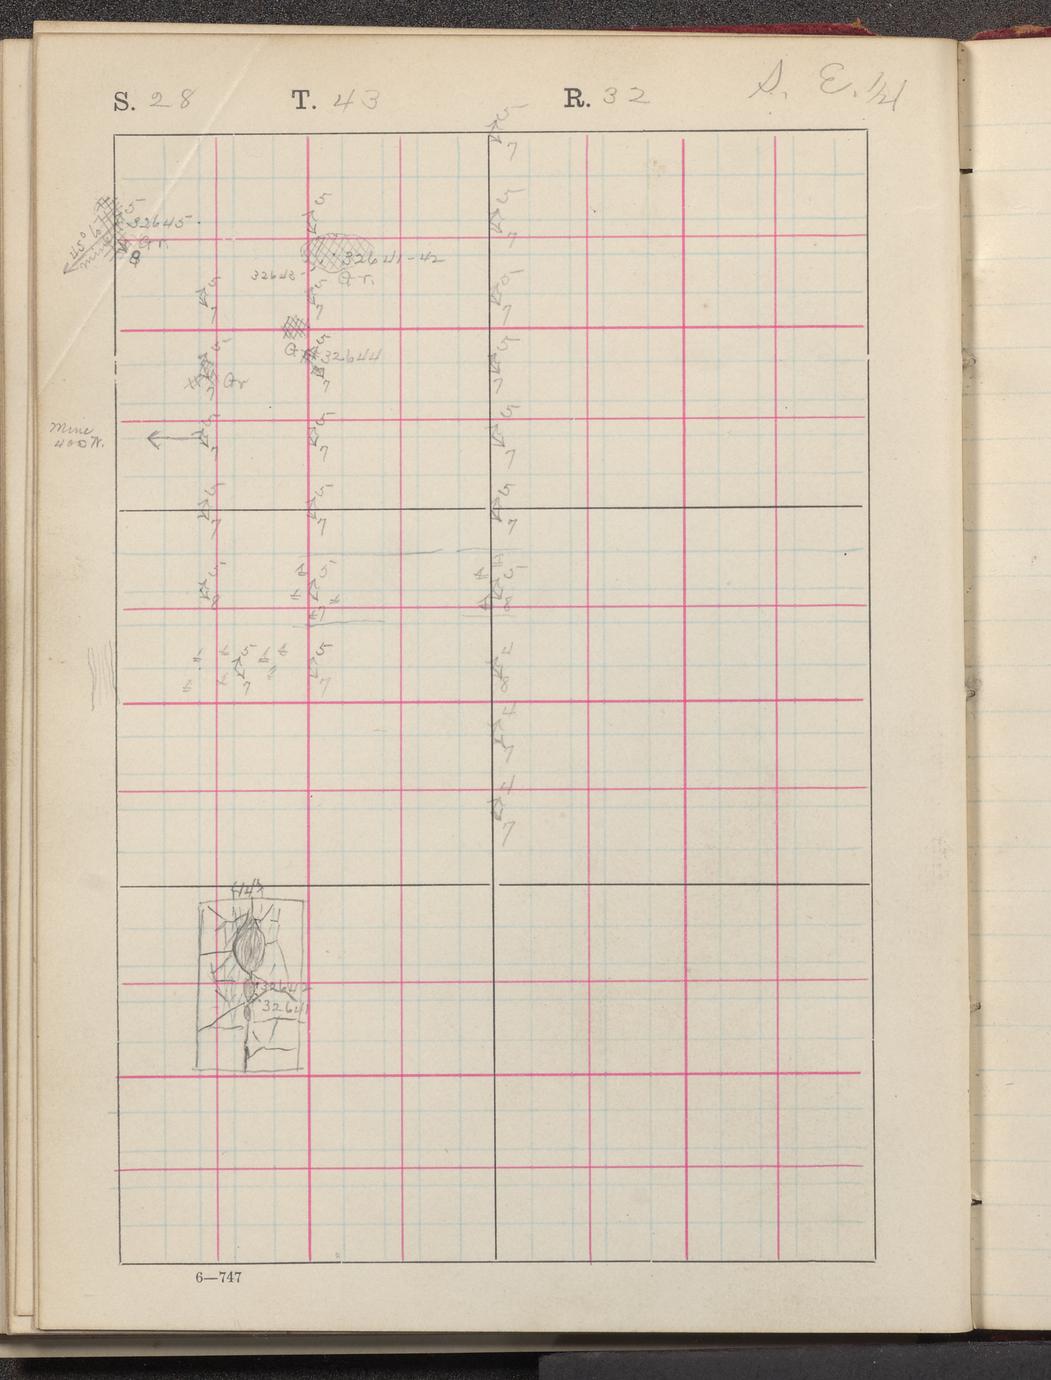 S. 28 T. 43 R. 32 S. E. 1/4
5
7
5
5
5
32645
7
Gr.
8
45° W
mine
32641-42
32643
Gr.
5
5
5
7
7
7
5
5
5
Gr
32644
Gr
7
7
7
Mine
400 N.
5
5
5
7
7
7
5
5
5
7
7
7
5
5
5
8
7
8
5
5
4
7
7
8
4
7
4
7
(14)
32642
32641
6—747